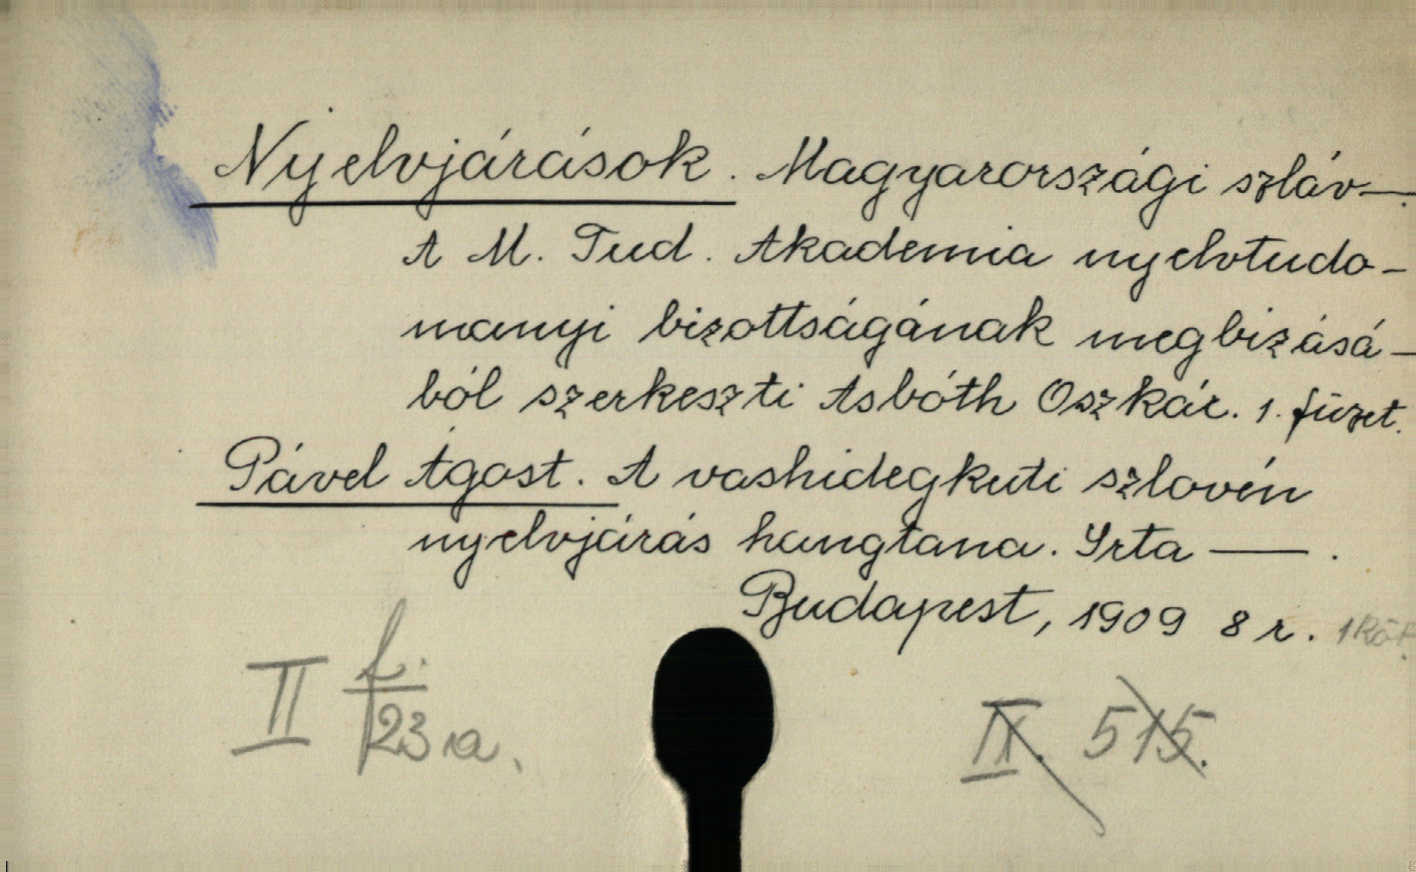 Nyelvjárások. Magyarországi szláv—.
A M. Tud. Akademia nyelvtudo-
manyi bizottságának megbizásá-
ból szerkeszti Asbóth Oszkár. 1. füzet.
Pável Ágost. A vashidegkuti szlovén
nyelvjárás hangtana. Irta — .
Budapest, 1909 8 r. 1 köt.
II 23 a.
II. 515.